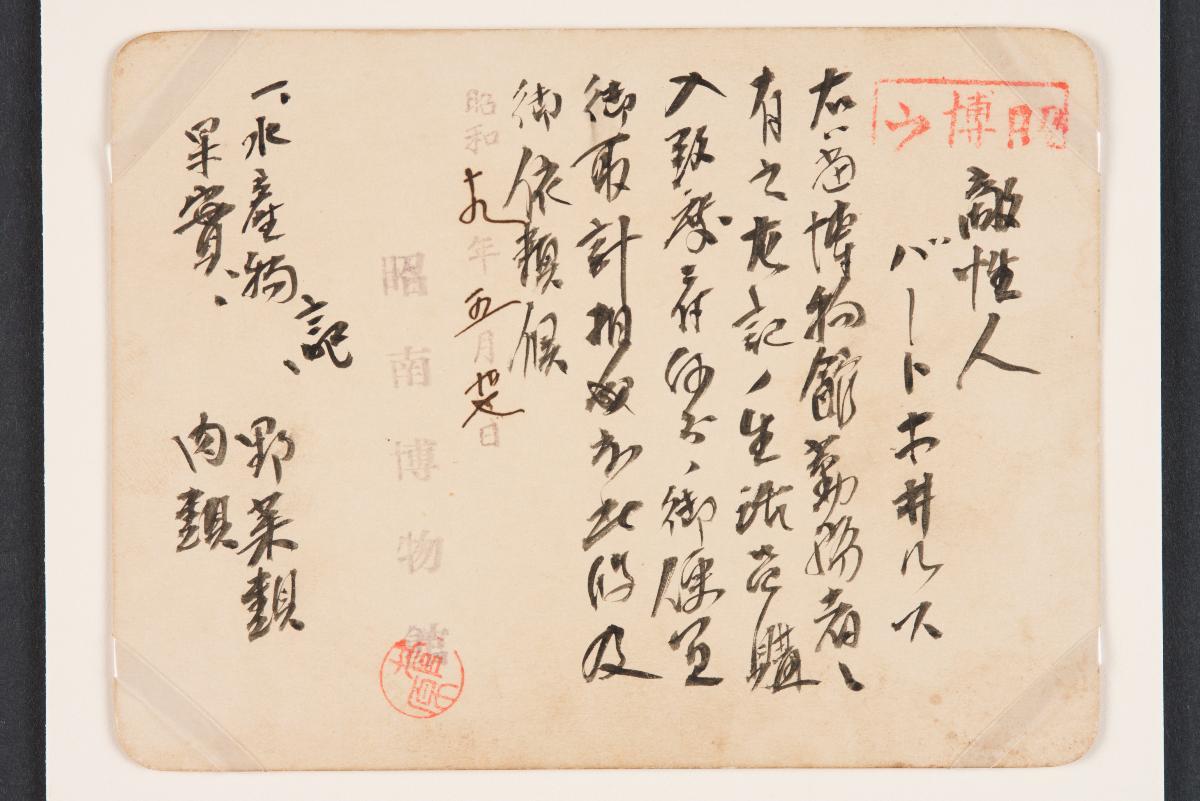 昭博
敵性人
バートホ井ルス
右ハ当博物館勤務者ニ
有之左記ノ生活品購
入致度ニ付何分ノ御便宜
御取計相成度此段及
御依頼候
昭和十九年五月日
昭南博物館
記
一、水産物、野菜類
果實、肉類